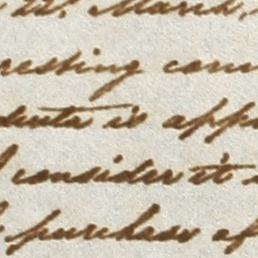 22d. March,
resting com
dents is app
consider it
purchase of